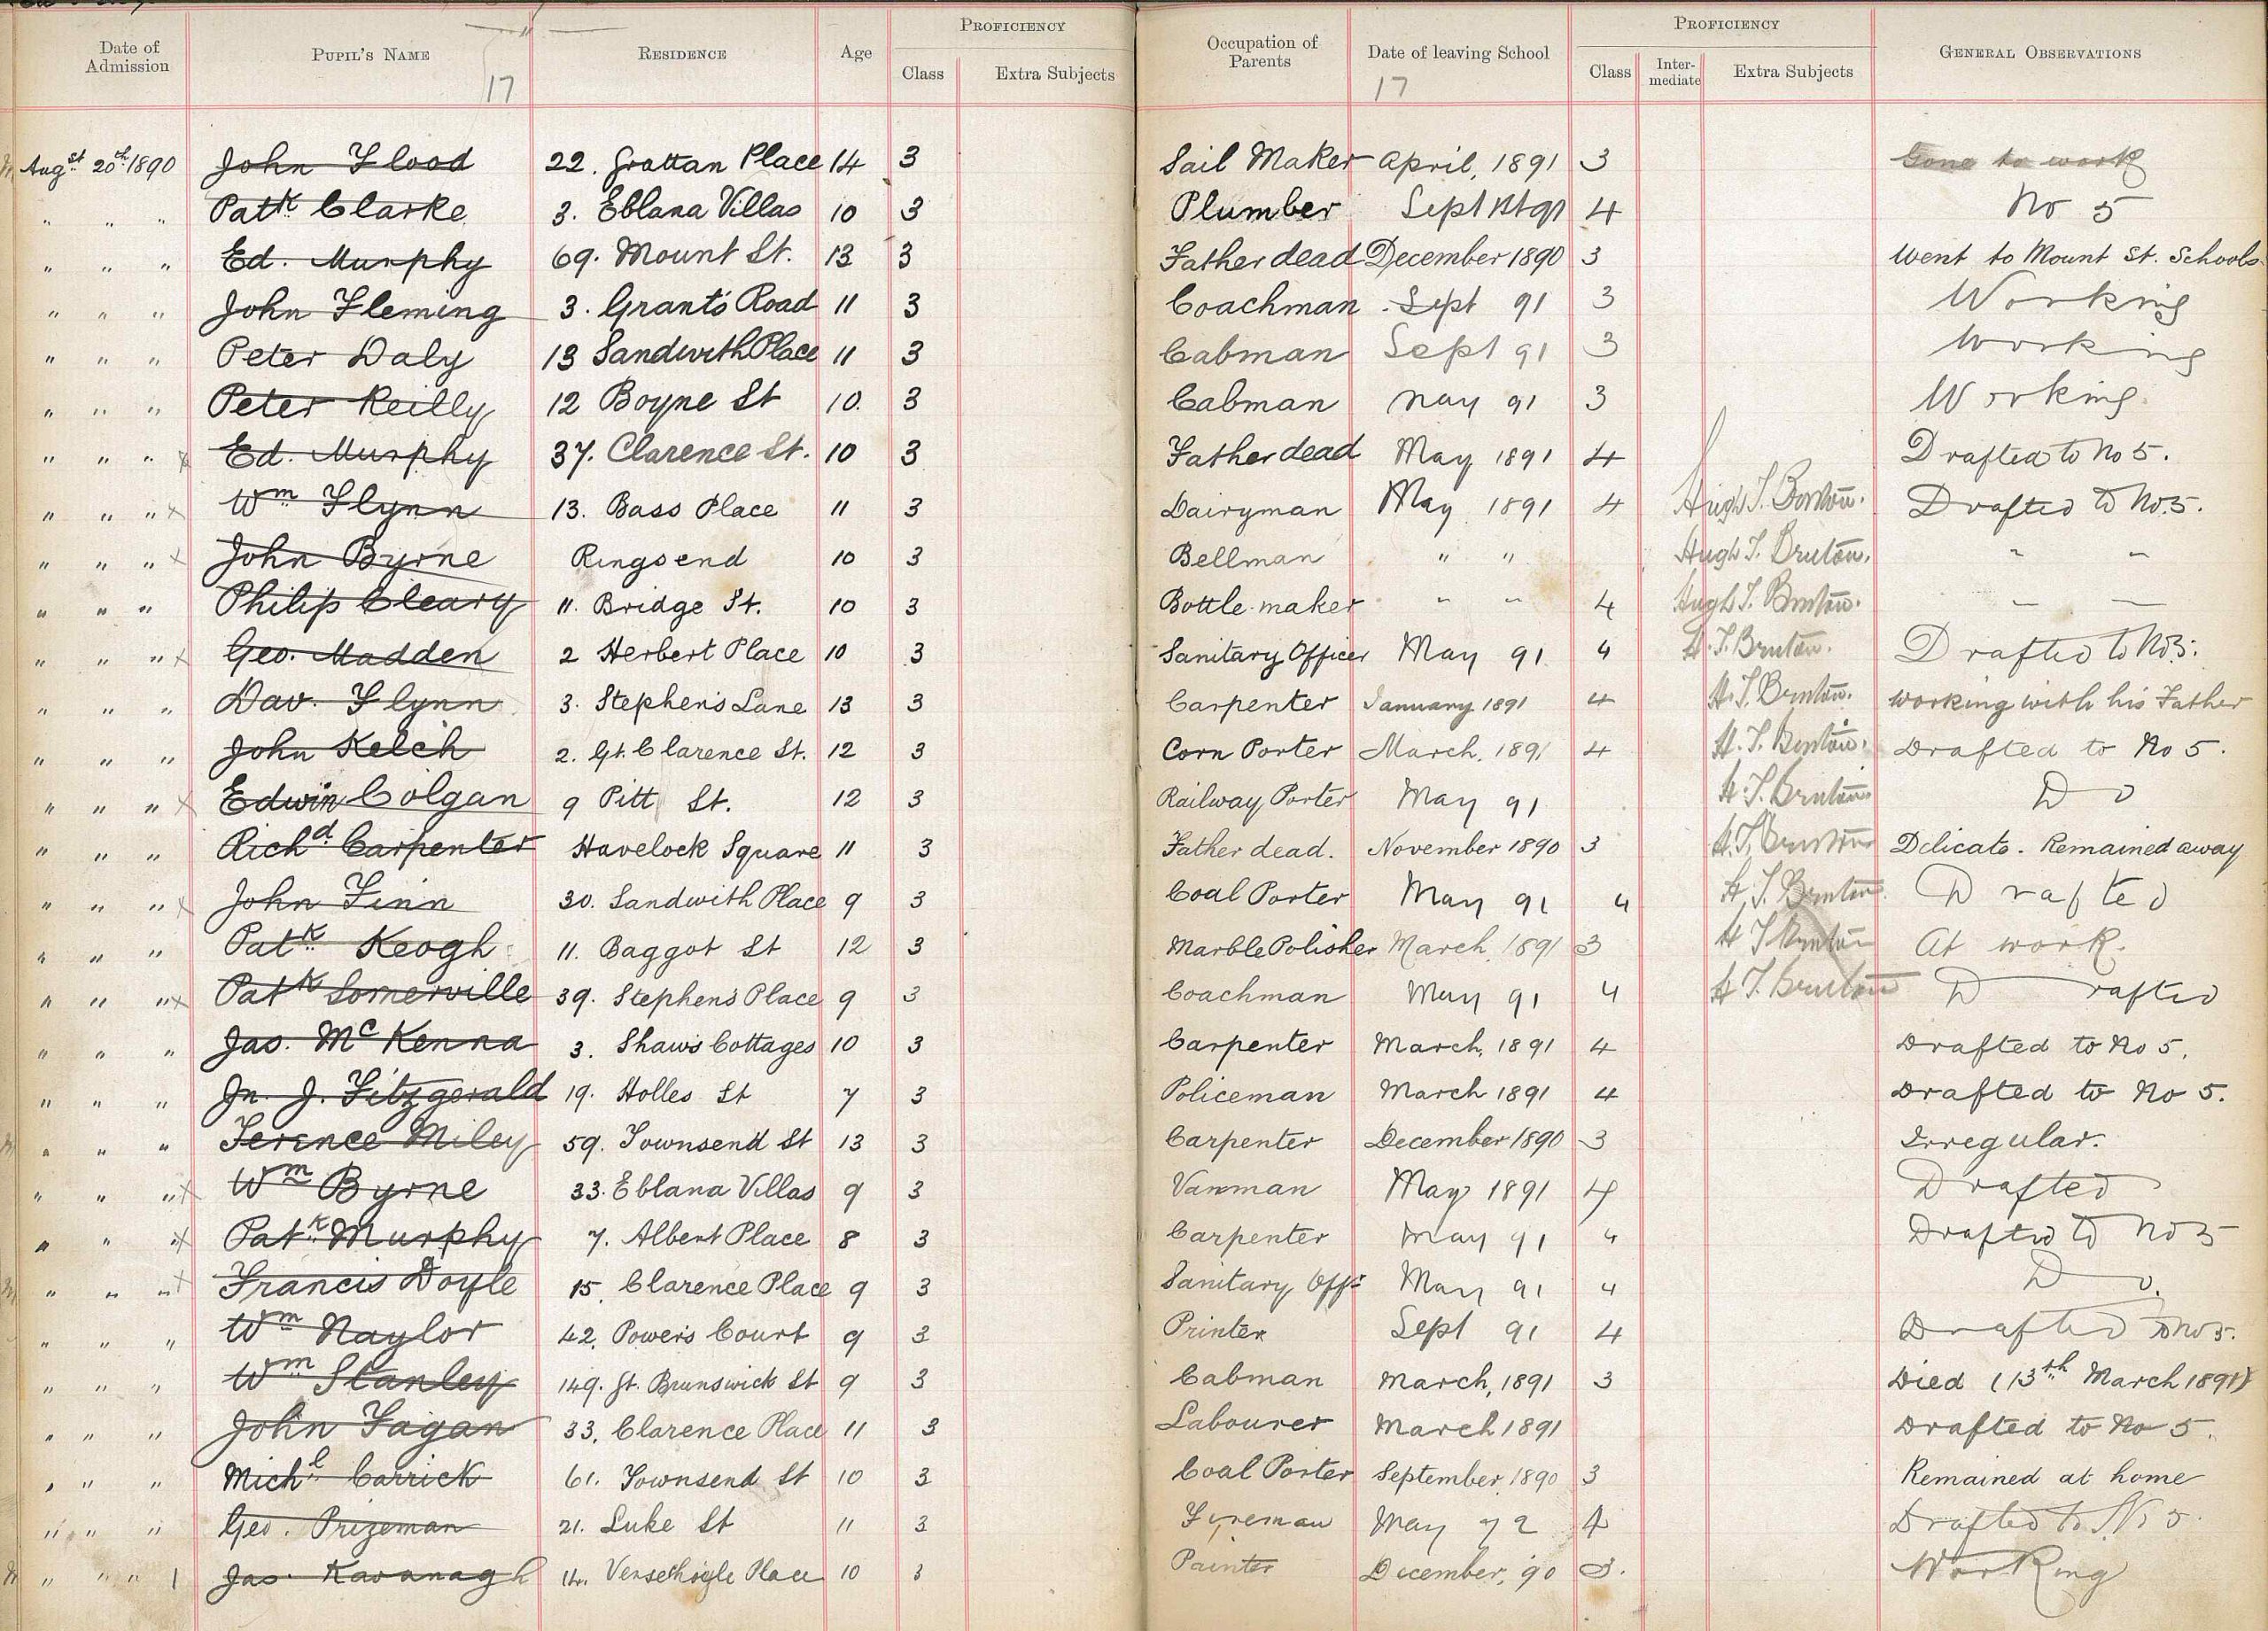 Date of Admission PUPIL'S NAME RESIDENCE Age PROFICIENCY Class Extra Subjects Occupation of Parents Date of leaving School PROFICIENCY Class Inter-mediate Extra Subjects GENERAL OBSERVATIONS
17 17
Augst 20th 1890 John Flood 22. Grattan Place 14 3 Sail Maker April, 1891 3 Gone to work
" " " Patk Clarke 3. Eblana Villas 10 3 Plumber Sept 91 4 No 5
" " " Ed. Murphy 69. Mount St. 13 3 Father dead December 1890 3 Went to Mount St. Schools
" " " John Fleming 3. Grant's Road 11 3 Coachman Sept 91 3 Working
" " " Peter Daly 13 Sandwith Place 11 3 Cabman Sept 91 3 Working
" " " Peter Reilly 12 Boyne St 10. 3 Cabman May 91 3 Working
" " " x Ed. Murphy 37. Clarence St. 10 3 Father dead May 1891 4 Drafted to No 5.
" " " x Wm Flynn 13. Bass Place 11 3 Dairyman May 1891 4 Hugh T. Bruton. Drafted to No. 5.
" " " x John Byrne Ringsend 10 3 Bellman " " Hugh T. Bruton. " "
" " " Philip Cleary 11. Bridge St. 10 3 Bottle-maker " " 4 Hugh T. Bruton. " "
" " " x Geo. Madden 2 Herbert Place 10 3 Sanitary Officer May 91 4 H. T. Bruton. Drafted to No 5.
" " " Dav. Flynn 3. Stephen's Lane 13 3 Carpenter January 1891 4 H. T. Bruton. Working with his Father
" " " John Kelch 2. Gt. Clarence St. 12 3 Corn Porter March, 1891 4 H. T. Bruton. Drafted to No 5.
" " " x Edwin Colgan 9 Pitt St. 12 3 Railway Porter May 91 H. T. Bruton Do
" " " Richd Carpenter Havelock Square 11 3 Father dead. November 1890 3 H. T. Bruton Delicate. Remained away
" " " x John Finn 30. Sandwith Place 9 3 Coal Porter May 91 4 H. T. Bruton Drafted
" " " Patk Keogh 11. Baggot St 12 3 Marble Polisher March, 1891 3 H T Bruton At work.
" " " x Patk Somerville 39. Stephen's Place 9 3 Coachman May 91 4 H T. Bruton Drafted
" " " Jas. McKenna 3. Shaw's Cottages 10 3 Carpenter March, 1891 4 Drafted to No 5.
" " " Jn. J. Fitzgerald 19. Holles St 7 3 Policeman March 1891 4 Drafted to No 5.
" " " Terence Miley 59. Townsend St 13 3 Carpenter December 1890 3 Irregular.
" " " x Wm Byrne 33. Eblana Villas 9 3 Vanman May 1891 4 Drafted
" " " x Patk Murphy 7. Albert Place 8 3 Carpenter May 91 4 Drafted to No 5
" " " x Francis Doyle 15. Clarence Place 9 3 Sanitary Offr May 91 4 Do.
" " " Wm Naylor 42. Power's Court 9 3 Printer Sept 91 4 Drafted to No 5.
" " " Wm Stanley 149. Gt. Brunswick St 9 3 Cabman March, 1891 3 Died (13th March 1891)
" " " John Fagan 33. Clarence Place 11 3 Labourer March 1891 Drafted to No 5.
" " " Michl Carrick 61. Townsend St 10 3 Coal Porter September, 1890 3 Remained at home
" " " Geo. Prizeman 21. Luke St 11 3 Fireman May 92 4 Drafted to No 5.
" " " Jas. Kavanagh 14. Place 10 3 Painter December, 90 3. Working